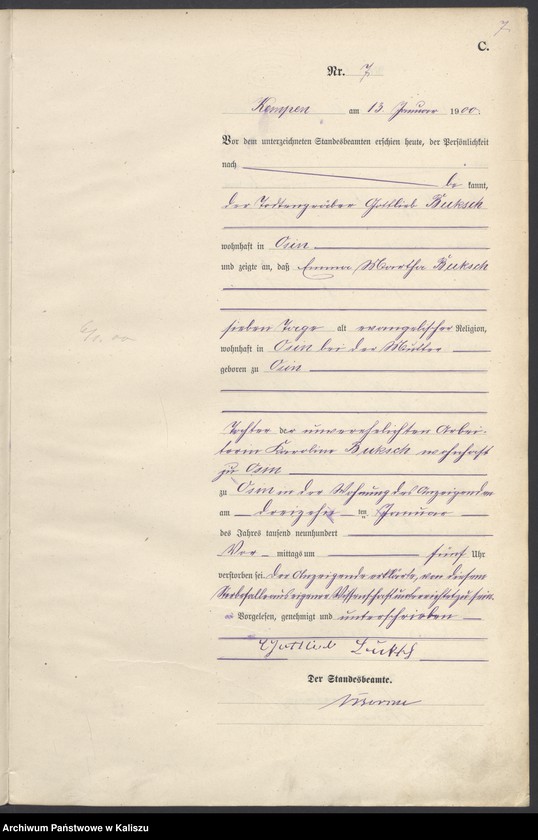 7
C.
Nr. 7
Kempen am 13. Januar 1900.
Vor dem unterzeichneten Standesbeamten erschien heute, der Persönlichkeit
nach
be kannt,
der Todtengräber Gottlieb Buksch
wohnhaft in Osin
und zeigte an, daß Emma Martha Buksch
sieben Tage alt evangelischer Religion,
wohnhaft in Osin bei der Mutter
geboren zu Osin
6/1. 00
Tochter der unverehelichten Arbei-
terin Karoline Buksch wohnhaft
zu Osin
zu Osin in der Wohnung des Anzeigenden
am dreizehn ten Januar
des Jahres tausend neunhundert
Vor mittags um fünf Uhr
verstorben sei. Der Anzeigende erklärte, von diesem
Sterbefalle aus eigener Wissenschaft unterrichtet zu sein.
Vorgelesen, genehmigt und unterschrieben
Gottlieb Buksch
Der Standesbeamte.
Archiwum Państwowe w Kaliszu